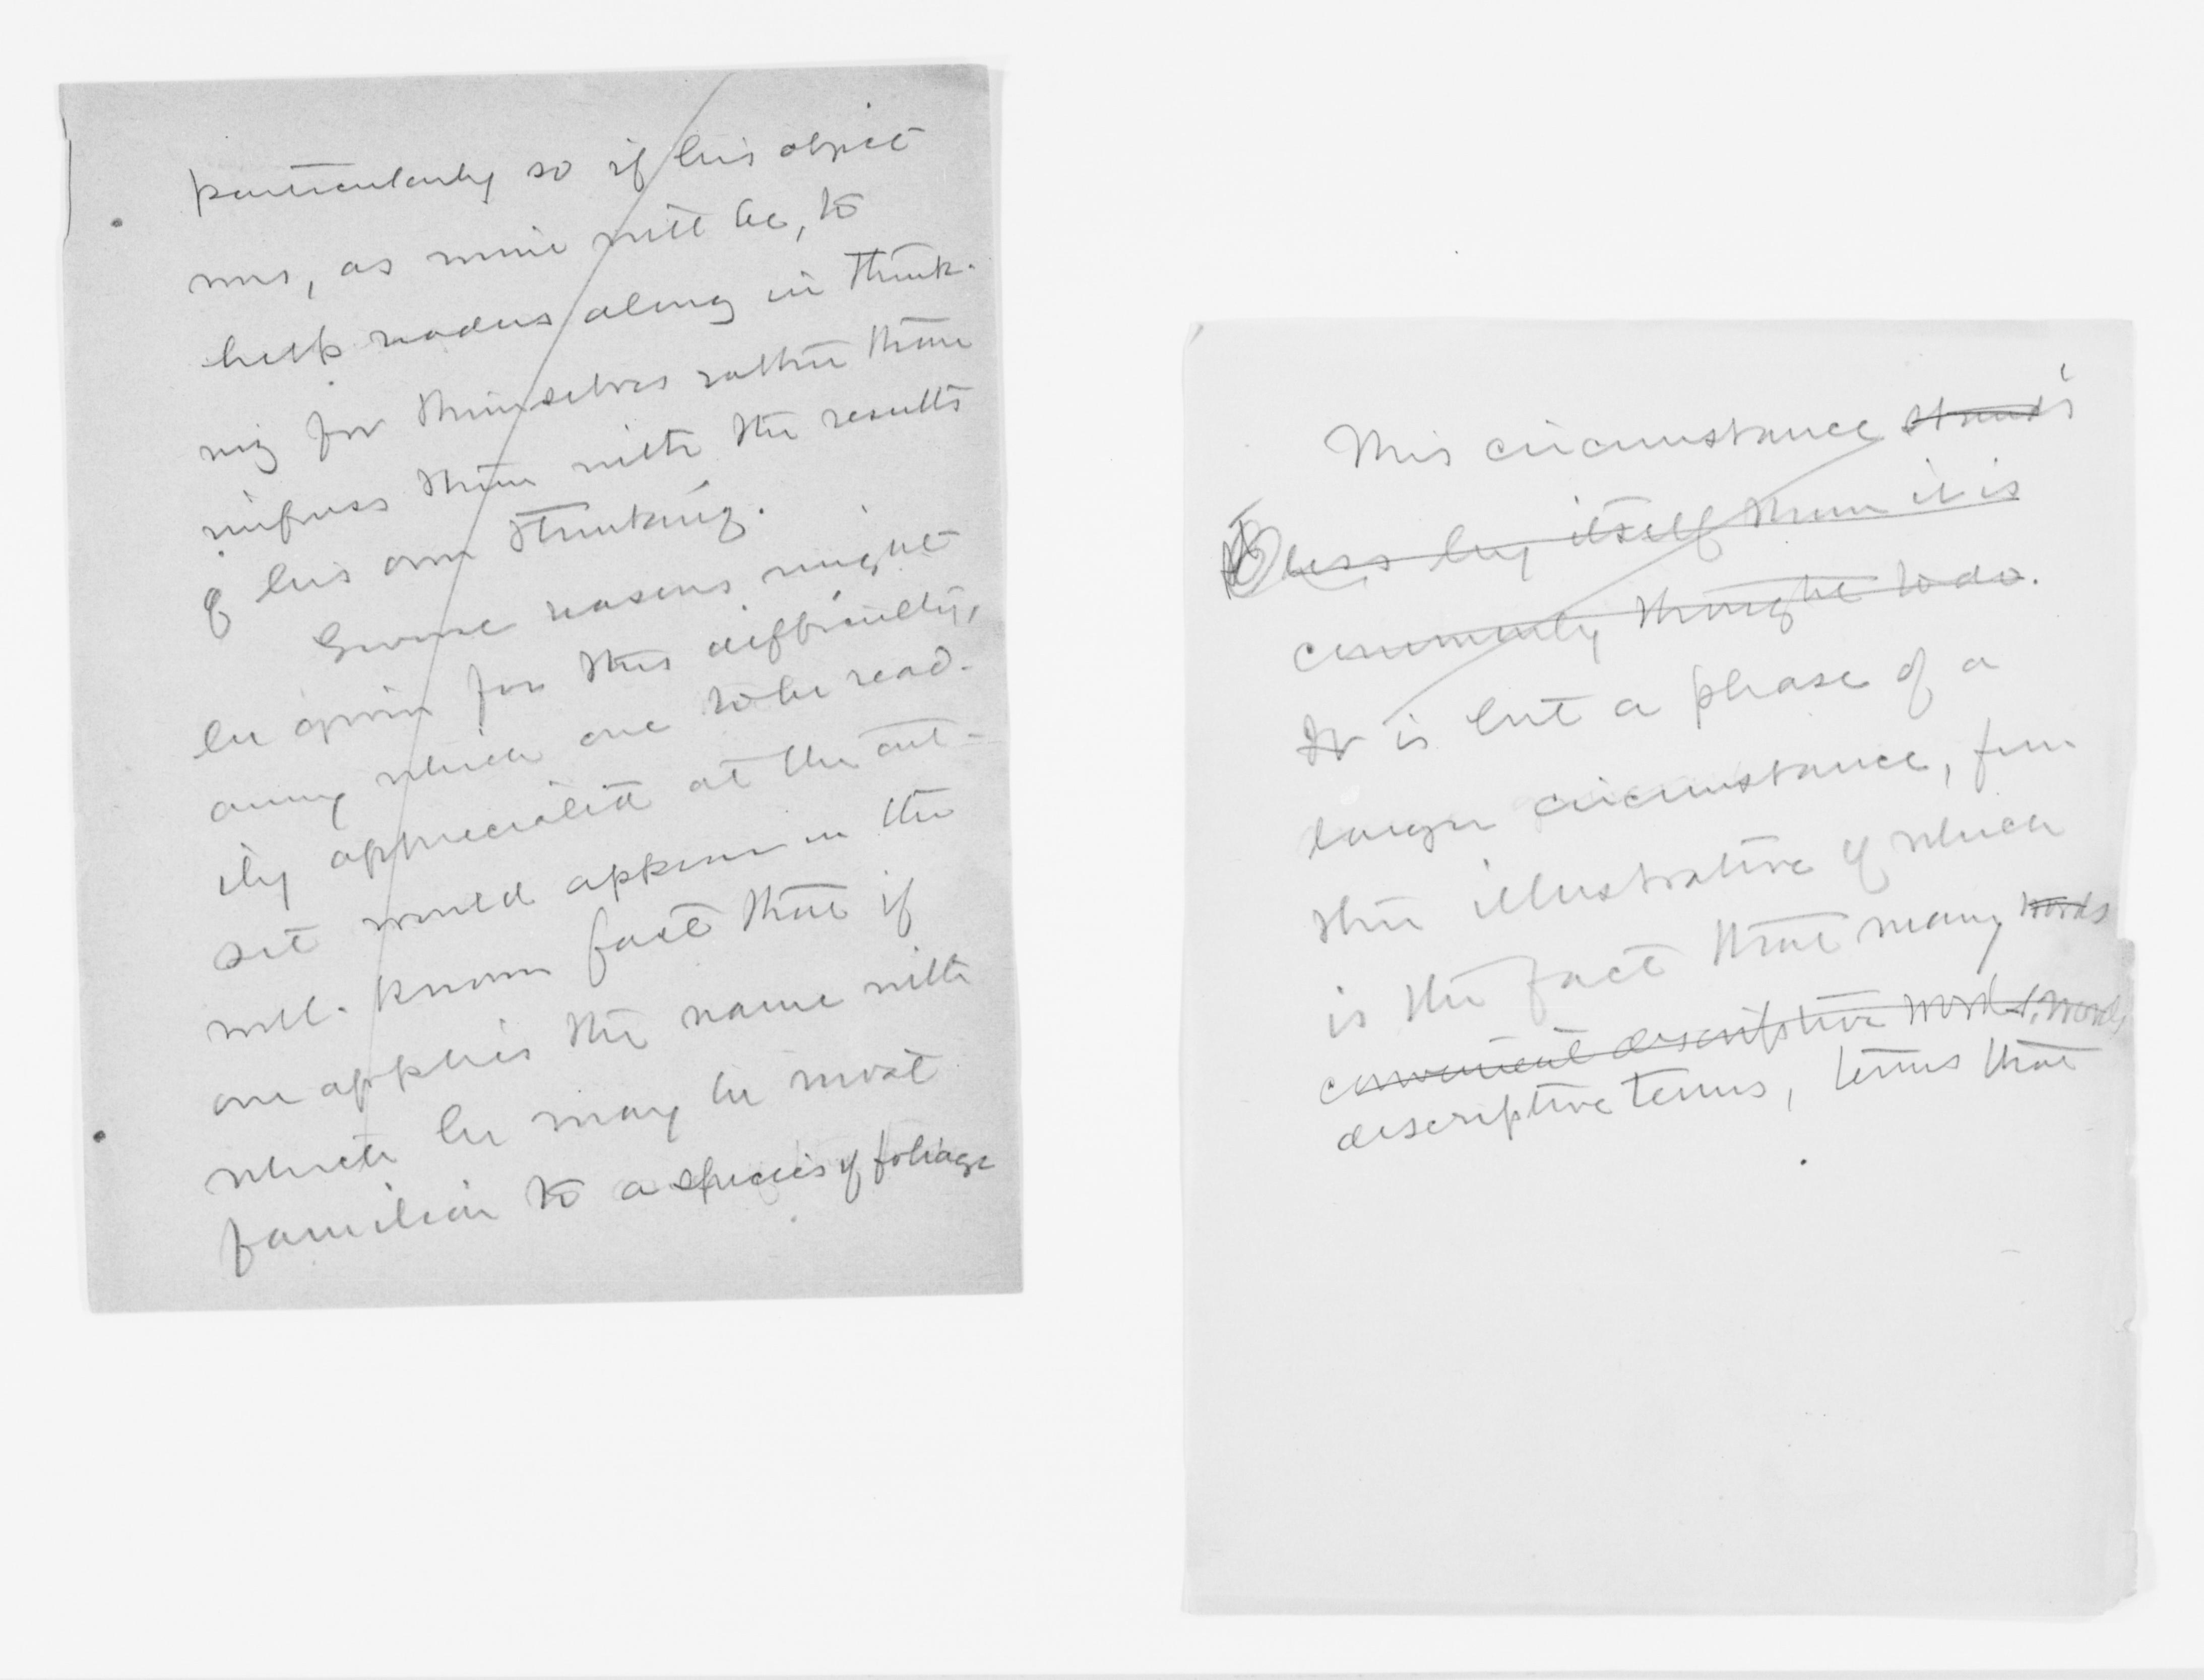 particularly so if his object
was, as mine will be, to
help readers along in think-
ing for themselves rather than
impress them with the results
of his own thinking.
Some reasons might
be given for this difficulty,
among which one to be read-
ily appreciated at the out-
set would appear in the
well-known fact that if
one applies the name with
which he may be most
familiar to a species of foliage
This circumstance stands
less by itself than it is
commonly thought to do.
It is but a phase of a
larger circumstance, fur
ther illustrative of which
is the fact that many words
convenient descriptive words, words
descriptive terms, terms that